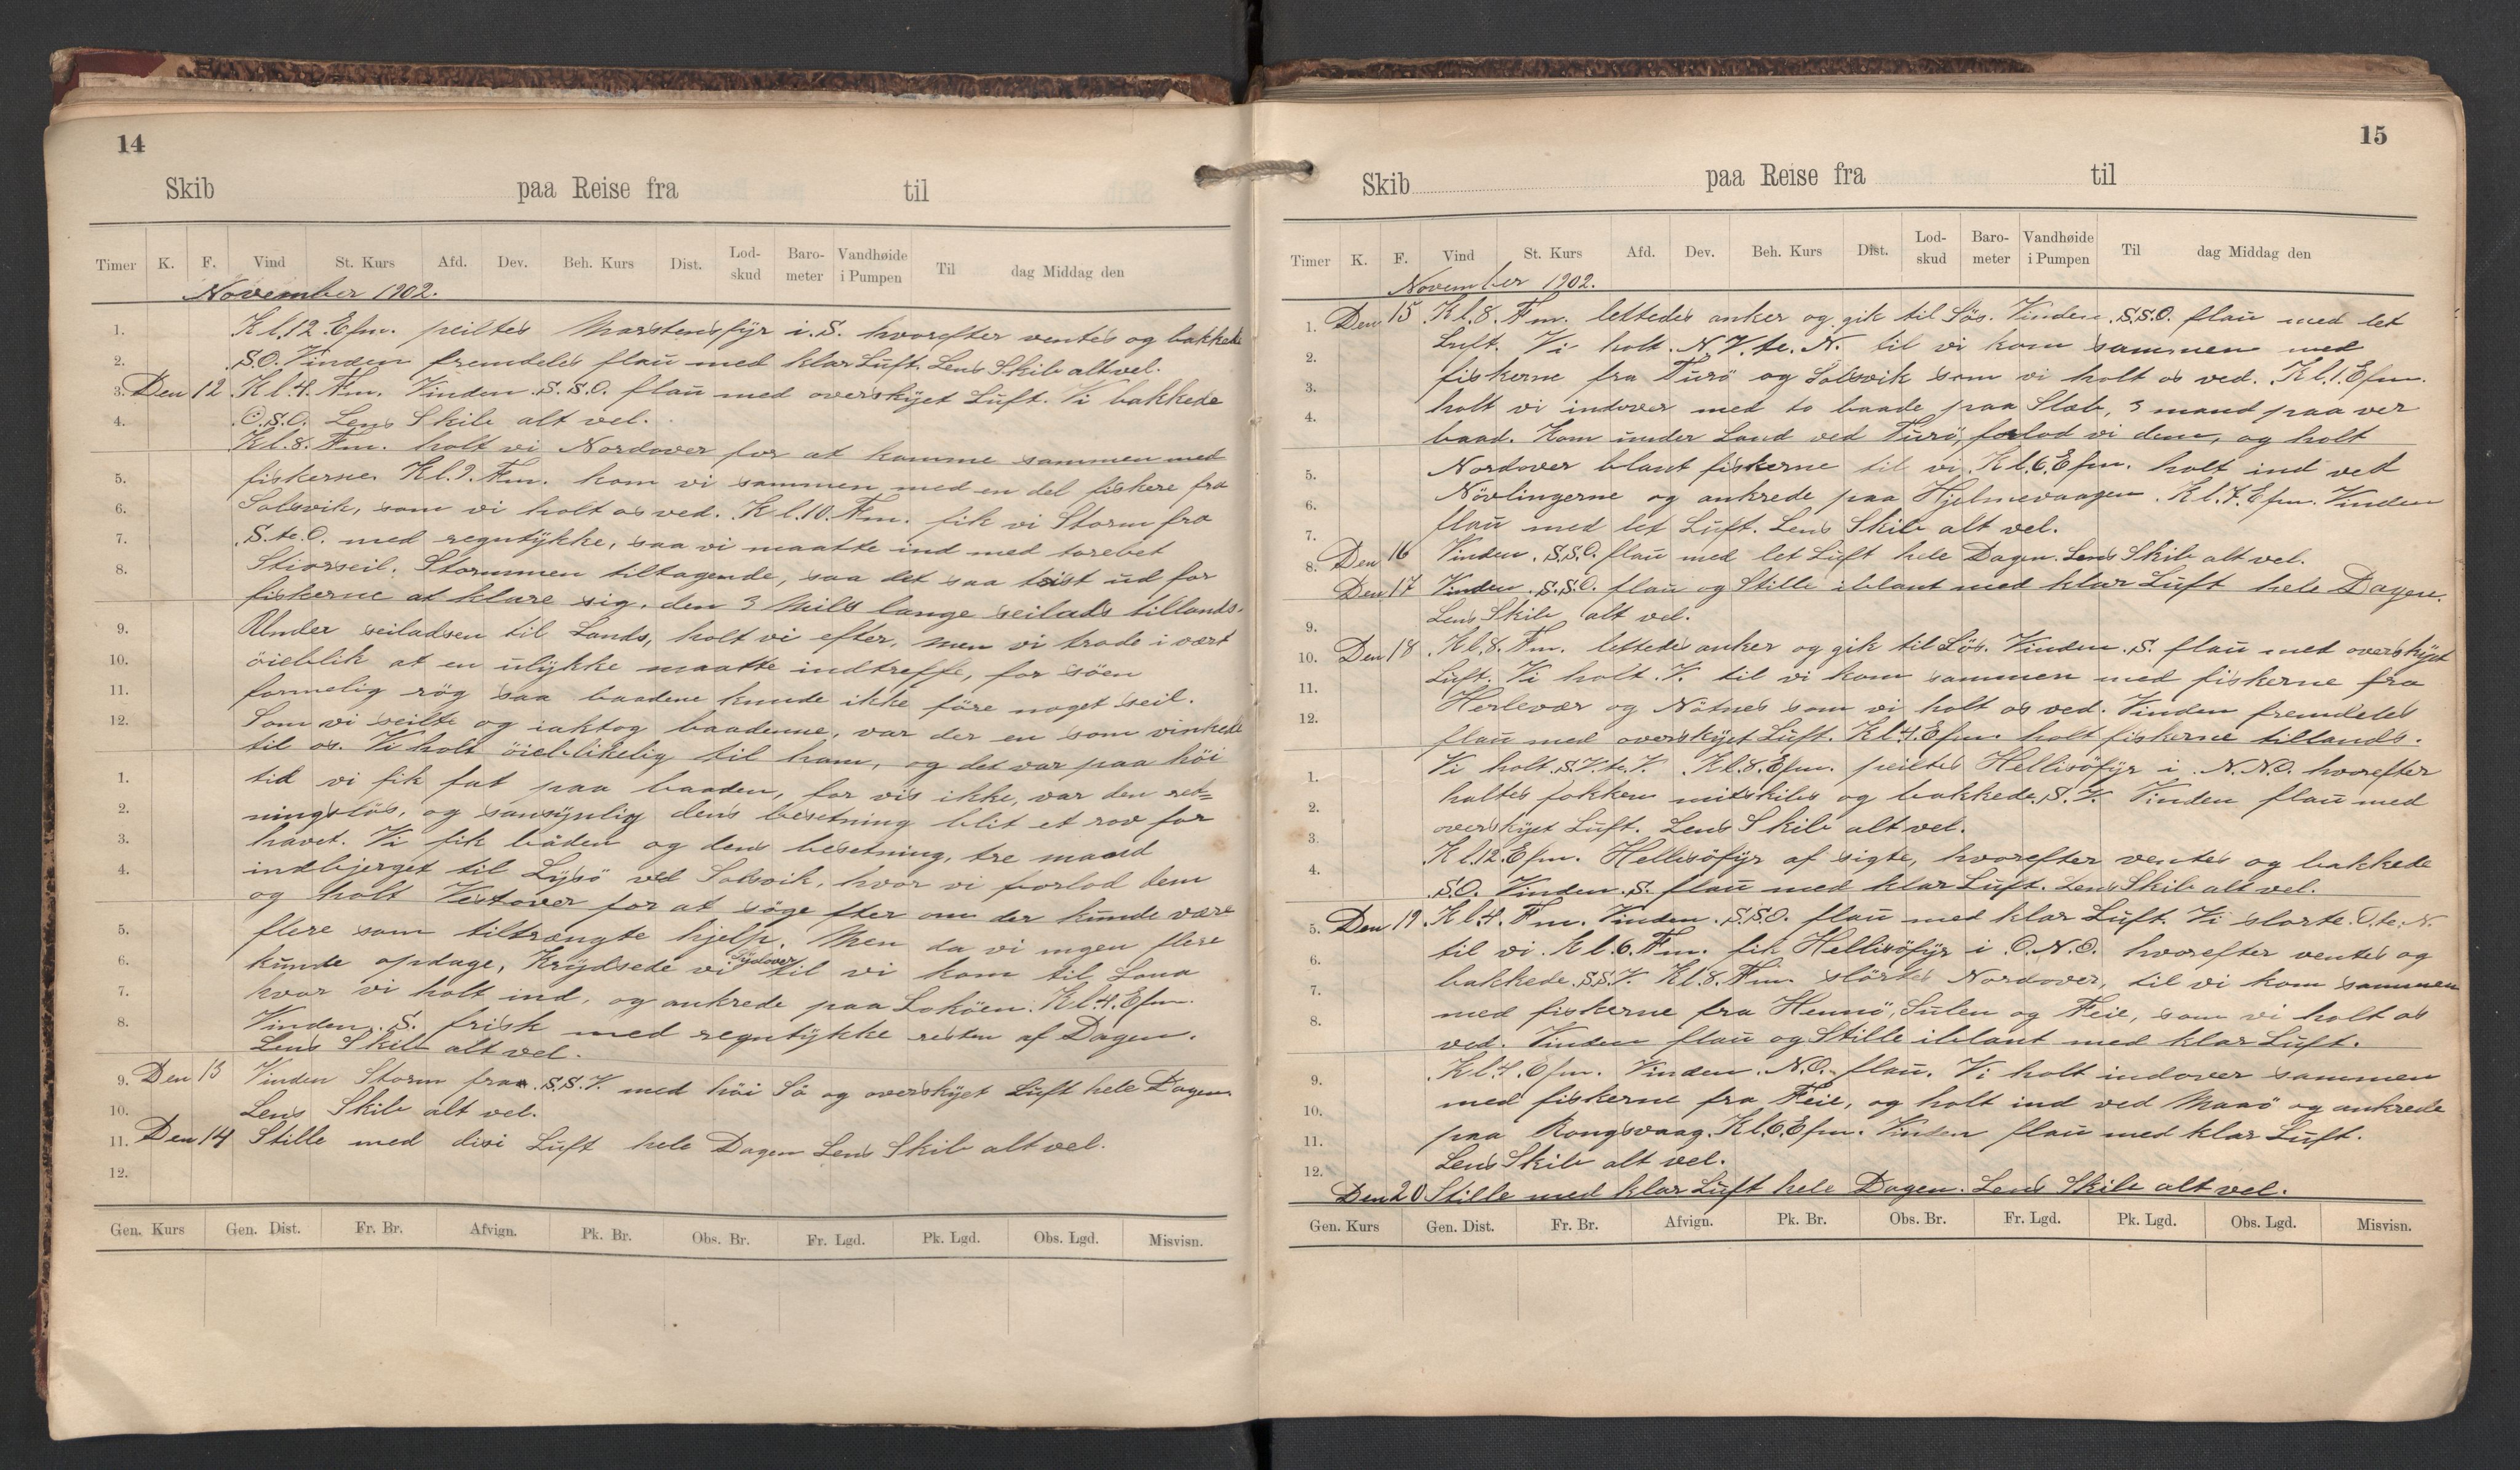 14
Skib paa Reise fra til
Timer K. F. Vind St. Kurs Afd. Dev. Beh. Kurs Dist. Lod-skud Baro-meter Vandhøide i Pumpen Til dag Middag den
November 1902.
1. Kl. 12 Efm. peiltes Marstensfÿr i. S. hvorefter ventes og bakkede
2. S.O. Vinden fremdeles flaü med klar Lüft. Lens Skib alt vel.
3. Den 12 Kl. 4. Fm. Vinden. S.S.O. flaü med overskÿet Lüft. Vi bakkede
4. O.S.O. Lens Skib alt vel.
Kl. 8. Fm. holt vi Nordover for at komme sammen med
5. fiskerne. Kl. 9. Fm. kom vi sammen med en del fiskere fra
6. Solsvik, som vi holt os ved. Kl. 10. Fm. fik vi Storm fra
7. S. te. O. med regntÿkke, saa vi maatte ind med torebet
8. Storseil. Stormmen tiltagende, saa det saa trist üd for
fiskerne at klare sig, den 3 Mils lange seilads tillands.
9. Under seiladsen til Lands, holt vi efter, men vi trode i vært
10. öieblik at en ülÿkke maatte indtreffe, for söen
11. formelig rög saa baadene kunde ikke före noget seil.
12. Som vi seilte og iaktog baadenne, var der en som vinkede
til os. Vi holt öieblikelig til ham, og det var paa höi
1. tid vi fik fat paa baaden, for vis ikke, var den ret=
2. ningslös, og sansÿnlig dens besetning blit et rov for
3. havet. Vi fik båden og dens besetning, tre mand
4. indbjerget til Lÿsö ved Solsvik, hvor vi forlod dem
og holt Vestover for at söge efter om der kunde være
5. flere som tiltrængte hjelp. Men da vi ingen flere
6. kunde opdage, Krÿdsede vi Sÿdover til vi kom til Sona
7. hvor vi holt ind, og ankrede paa Loköen. Kl. 4. Efm.
8. Vinden. S. frisk med regntÿkke resten af Dagen.
Lens Skib alt vel.
9. Den 13 Vinden Storm fra S.S.V. med höi Sö og overskÿet Lüft hele Dagen
10. Lens Skib alt vel.
11. Den 14 Stille med disi Lüft hele Dagen Lens Skib alt vel.
12.
Gen. Kurs Gen. Dist. Fr. Br. Afvign. Pk. Br. Obs. Br. Fr. Lgd. Pk. Lgd. Obs. Lgd. Misvisn.
15
Skib paa Reise fra til
Timer K. F. Vind St. Kurs Afd. Dev. Beh. Kurs Dist. Lod-skud Baro-meter Vandhøide i Pumpen Til dag Middag den
November 1902.
1. Den 15 Kl. 8. Fm. lettedes anker og gik til Sös. Vinden. S.S.O. flaü med let
2. Lüft. Vi holt. N.V. te. N. til vi kom sammen med
3. fiskerne fra Turö og Solsvik som vi holt os ved. Kl. 1. Efm.
4. holt vi indover med to baade paa Slæb, 3 mand paa ver
baad. Kom ünder Land ved Türö, forlod vi dem, og holt
5. Nordover blant fiskerne til vi. Kl. 6. Efm. holt ind ved
6. Növlingerne og ankrede paa Hjelmevaagen. Kl. 7. Efm. Vinden
7. flaü med let Lüft. Lens Skib alt vel.
8. Den 16 Vinden. S.S.O. flaü med let Lüft hele Dagen. Lens Skib alt vel.
Den 17 Vinden. S.S.O. flaü og Stille iblant med klar Lüft hele Dagen.
9. Lens Skib alt vel.
10. Den 18 Kl. 8. Fm. lettedes anker og gik til Sös. Vinden. S. flaü med overskÿet
11. Lüft. Vi holt. V. til vi kom sammen med fiskerne fra
12. Herlevær og Nötnes som vi holt os ved. Vinden fremdeles
flaü med overskÿet Lüft. Kl. 4. Efm. holt fiskerne tillands.
1. Vi holt. S.V. te. V. Kl. 8. Efm. peiltes Hellisöfÿr i. N.N.O. hvorefter
2. haltes fokken mitskibs og bakkede. S.V. Vinden flaü med
3. overskÿet Lüft. Lens Skib alt vel.
4. Kl. 12. Efm. Hellisöfÿr af sigte, hvorefter ventes og bakkede
S.O. Vinden. S. flaü med klar Lüft. Lens Skib alt vel.
5. Den 19 Kl. 4. Fm. Vinden. S.S.O. flaü med klar Lüft. Vi slörte. O. te. N.
6. til vi. Kl. 6. Fm. fik Hellisöfÿr i O.N.O. hvorefter ventes og
7. bakkede. S.S.V. Kl. 8. Fm. slörtes Nordover, til vi kom sammen
8. med fiskerne fra Hennö, Sülen og Feie, som vi holt os
ved. Vinden flaü og Stille iblant med klar Lüft.
9. Kl. 4. Efm. Vinden. N.O. flaü. Vi holt indover sammen
10. med fiskerne fra Feie, og holt ind ved Maasö og ankrede
11. paa Rongsvaag. Kl. 6. Efm. Vinden flaü med klar Lüft.
12. Lens Skib alt vel.
Den 20 Stille med klar Lüft hele Dagen. Lens Skib alt vel.
Gen. Kurs Gen. Dist. Fr. Br. Afvign. Pk. Br. Obs. Br. Fr. Lgd. Pk. Lgd. Obs. Lgd. Misvisn.